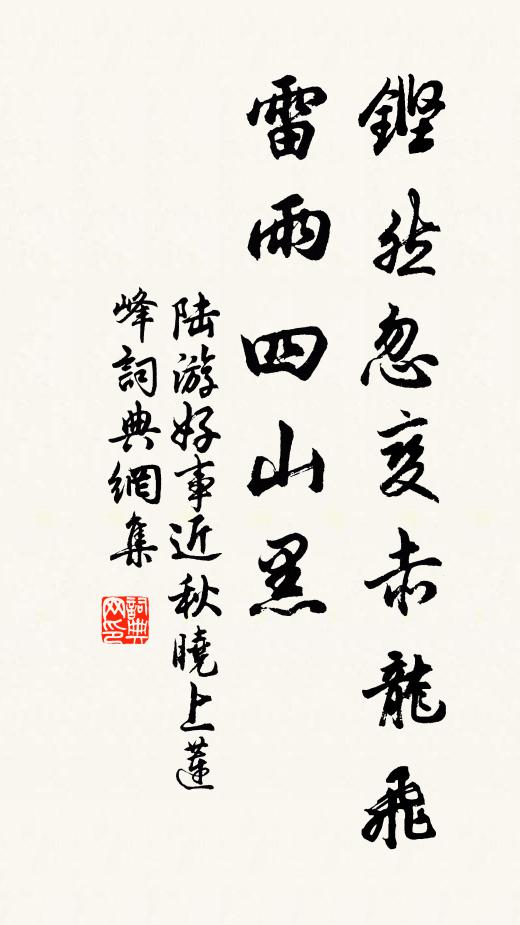 鏗然忽变赤龍飛
雷雨四山黑
陆游好事近秋曉上蓮
峰詞典網集
詞典
网印